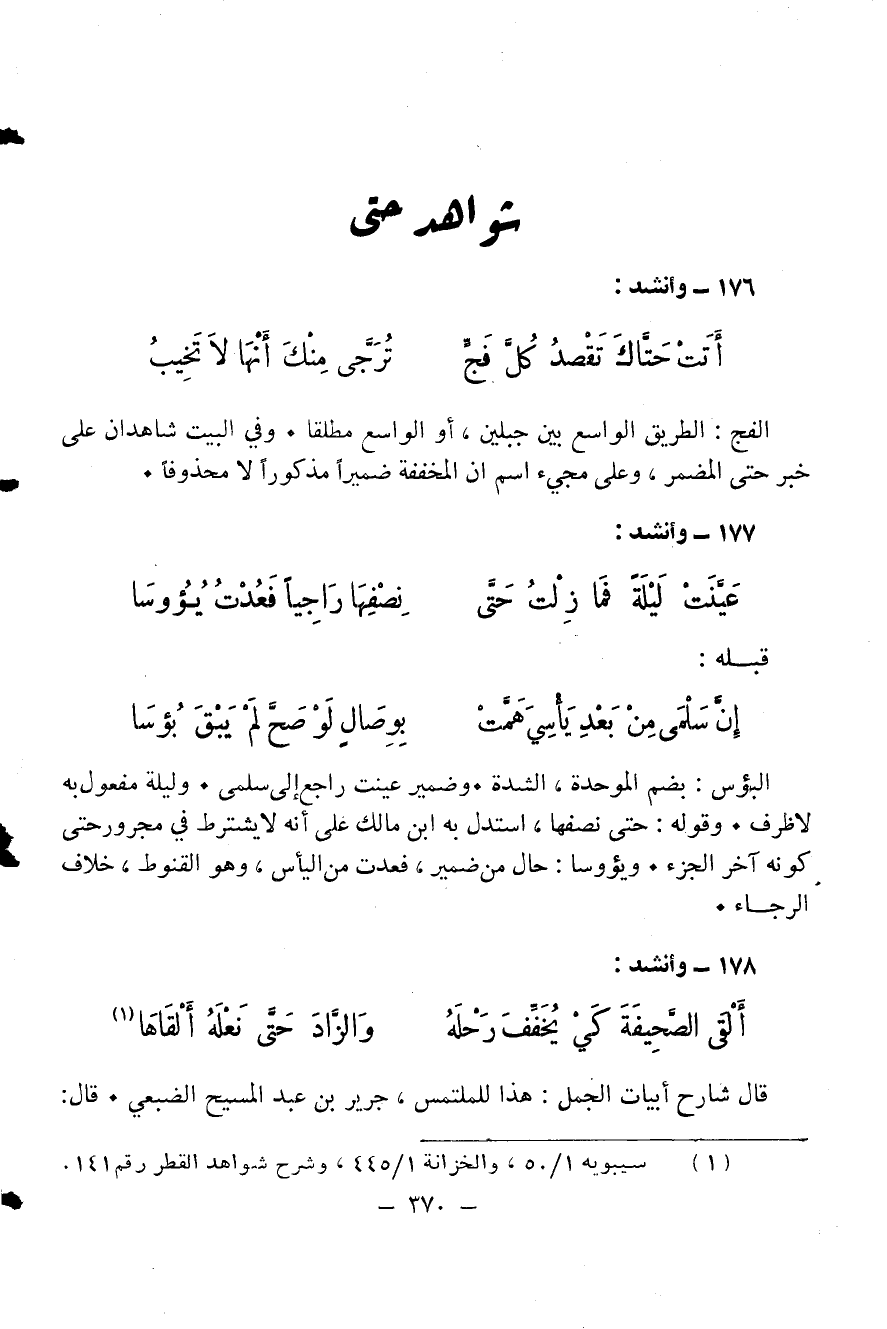 شواهد حتى
١٧٦ ــ وأنشد :
أَتَتْ حَتَّاكَ تَقْصدُ كُلَّ فَجٍّ تُرَجَّى مِنْكَ أَنْهَا لاَ تَخِيبُ
الفج : الطريق الواسع بين جبلين ، أو الواسع مطلقا ٠ وفي البيت شاهدان على
خبر حتى المضمر ، وعلى مجيء اسم ان المخففة ضميراً مذكوراً لا محذوفاً ٠
١٧٧ ــ وأنشد :
عَيَّنَتْ لَيْلَةً فَمَا زِلْتُ حَتَّى نِصْفِهَا رَاجِياً فَعُدْتُ يُؤُوسَا
قبــله :
إِنَّ سَلْمَى مِنْ بَعْدِ يَأْسِي هَمَّتْ بِوِصَالٍ لَوْ صَحَّ لَمْ يَبْقَ بُؤسَا
البؤس : بضم الموحدة ، الشدة ٠وضمير عينت راجع إلى سلمى ٠ وليلة مفعول به
لاظرف ٠ وقوله : حتى نصفها ، استدل به ابن مالك على أنه لايشترط في مجرورحتى
كونه آخر الجزء ٠ ويؤوسا : حال من ضمير ، فعدت من اليأس ، وهو القنوط ، خلاف
الرجــاء ٠
١٧٨ ــ وأنشد :
أَلْقَى الصَّحِيفَةَ كَيْ يُخَفِّفَ رَحْلَهُ وَالزَّادَ حَتَّى نَعْلَهُ أَلْقَاهَا(١)
قال شارح أبيات الجمل : هذا للملتمس ، جرير بن عبد المسيح الضبعي ٠ قال:
(١) سيبويه ٥٠/١ ، والخزانة ٤٤٥/١ ، وشرح شواهد القطر رقم ١٤١ .
– ٣٧٠ –